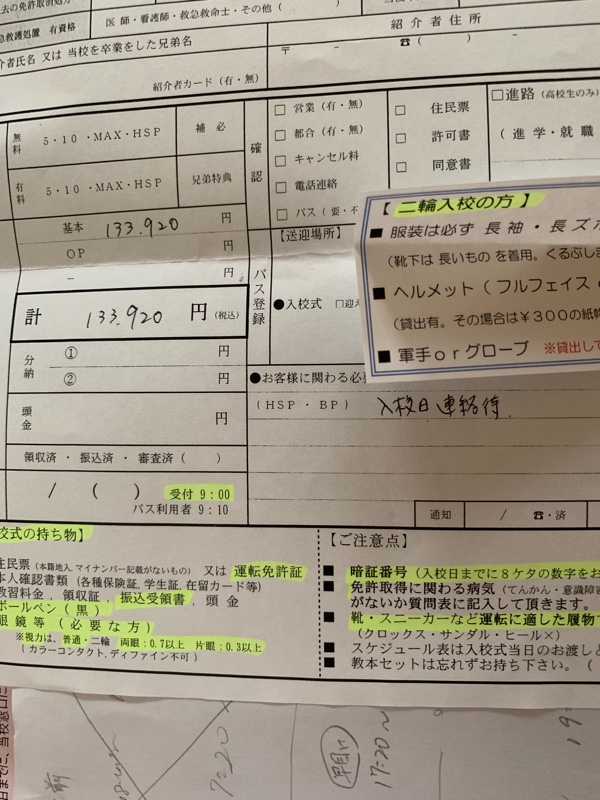 急救護処置 有資格
医師・看護師・救急救命士・その他(
介者氏名 又は 当校を卒業をした兄弟名
紹介者住所
〒 - ☎( ) -
紹介者カード(有・無)
無料 5・10・MAX・HSP 補必
有料 5・10・MAX・HSP 兄弟特典
基本 133.920 円
OP 円
- 円
計 133.920 円(税込)
分納 ① 円
② 円
頭金 円
領収済・振込済・審査済( )
/ ( ) 受付 9:00
バス利用者 9:10
確認
□ 営業(有・無)
□ 都合(有・無)
□ キャンセル料
□ 電話連絡
□ バス(要・不
□ 住民票
□ 許可書
□ 同意書
□進路(高校生のみ)
(進学・就職
バス登録
【送迎場所】
●入校式 □迎え
●お客様に関わる必
(HSP・BP) 入校日連絡待
通知 / ☎・済 /
【二輪入校の方】
■ 服装は必ず 長袖・長ズボ
(靴下は 長いもの を着用。くるぶしま
■ ヘルメット(フルフェイス o
(貸出有。その場合は¥300の紙帽
■ 軍手orグローブ ※貸出して
校式の持ち物】
住民票(本籍地入、マイナンバー記載がないもの) 又は 運転免許証
本人確認書類(各種保険証,学生証,在留カード等)
教習料金、領収証、振込受領書、頭金
ボールペン(黒)
眼鏡等(必要な方)
※視力は、普通・二輪 両眼:0.7以上 片眼:0.3以上
(カラーコンタクト、ディファイン不可)
【ご注意点】
■ 暗証番号(入校日までに8ケタの数字をお
■ 免許取得に関わる病気(てんかん・意識障害
がないか質問表に記入して頂きます。
■ 靴・スニーカーなど運転に適した履物
(クロックス・サンダル・ヒール×)
■ スケジュール表は入校式当日のお渡しと
■ 教本セットは忘れずお持ち下さい。(
日までに、当校窓口に
前
7:20
早目に
17:20~
19: